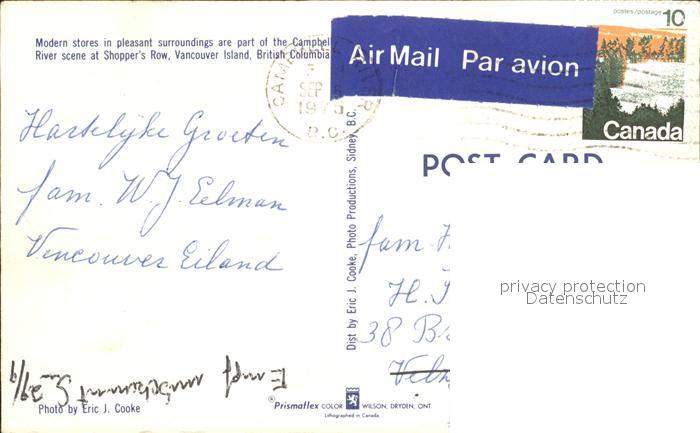 Modern stores in pleasant surroundings are part of the Campbell
River scene at Shopper's Row, Vancouver Island, British Columbia.
Air Mail Par avion
postes/postage 10
Canada
SEP
1975
B.C.
POST CARD
Hartelijke Groeten
fam. W. J. Eelman
Vencouver Eiland
Dist by Eric J. Cooke, Photo Productions, Sidney, B.C.
fam.
H.
38
privacy protection
Datenschutz
Photo by Eric J. Cooke
®Prismaflex COLOR WILSON, DRYDEN, ONT
Lithographed in Canada